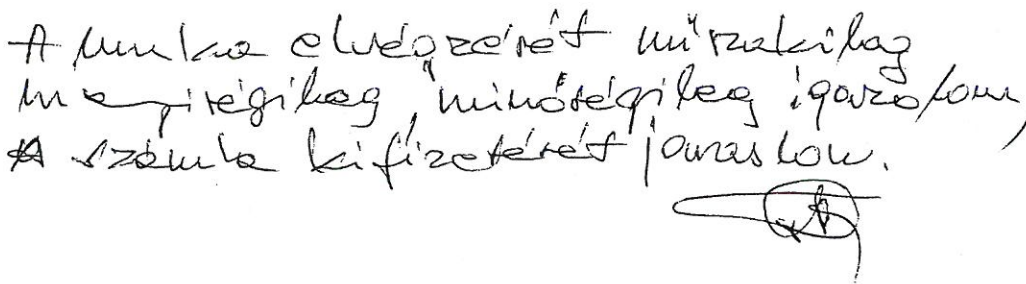 A munka elvégzését műszakilag
mennyiségileg, minőségileg igazolom,
A számla kifizetését javaslom.